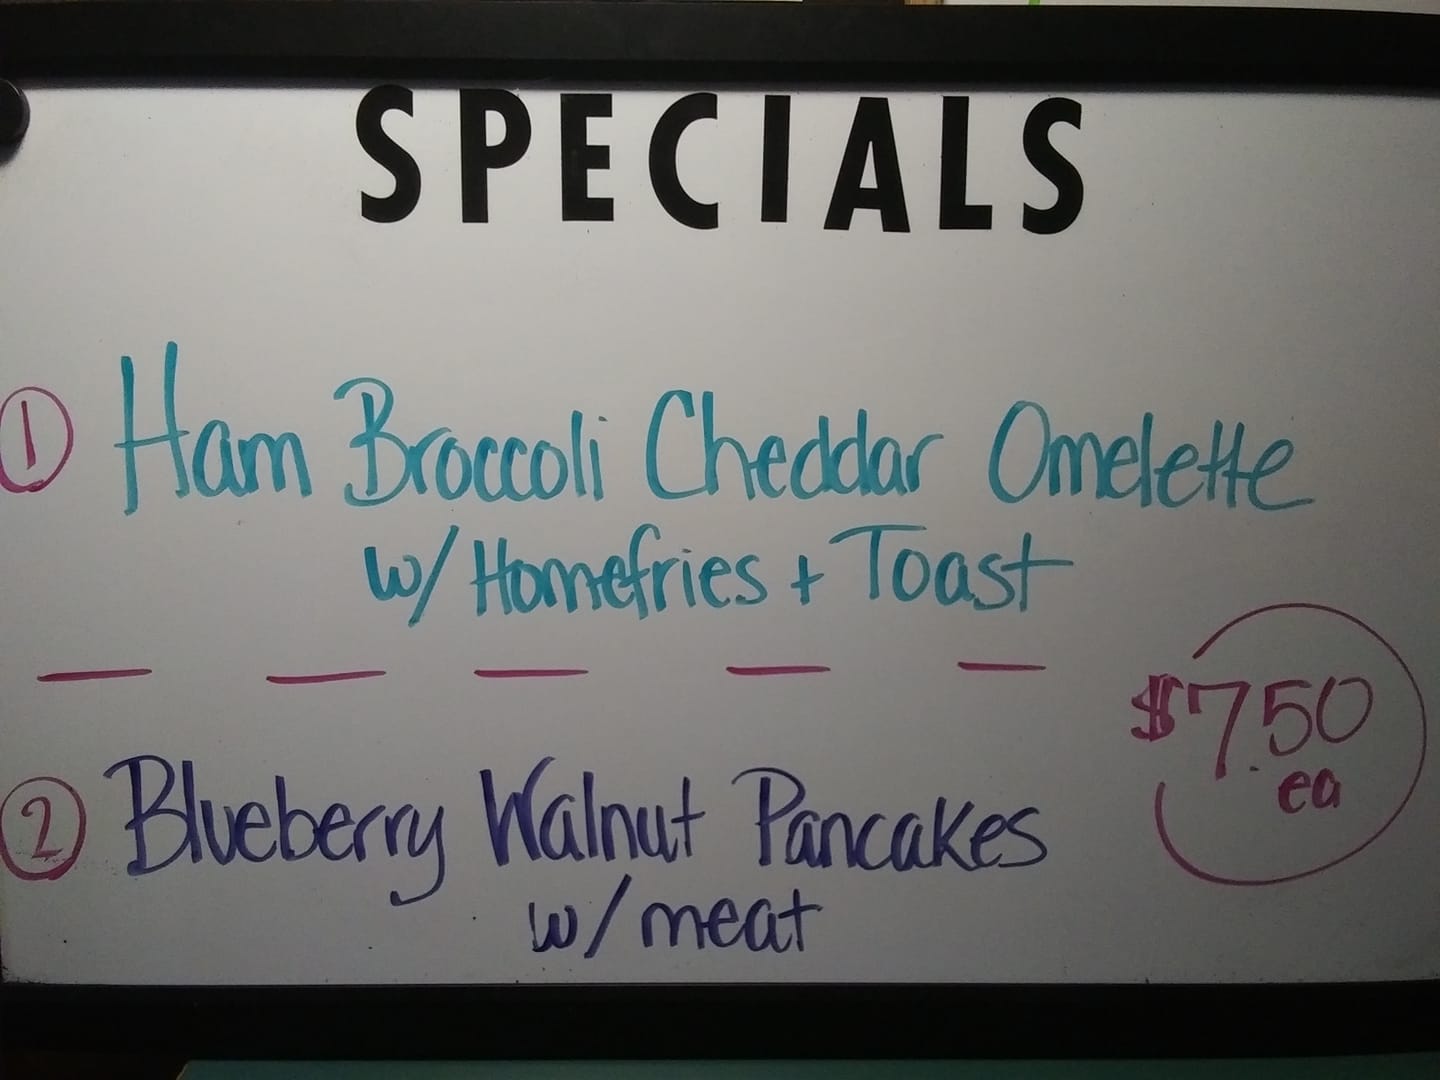 SPECIALS
1 Ham Broccoli Cheddar Omelette
w/ Homefries + Toast
$7.50
ea
2 Blueberry Walnut Pancakes
w/ meat